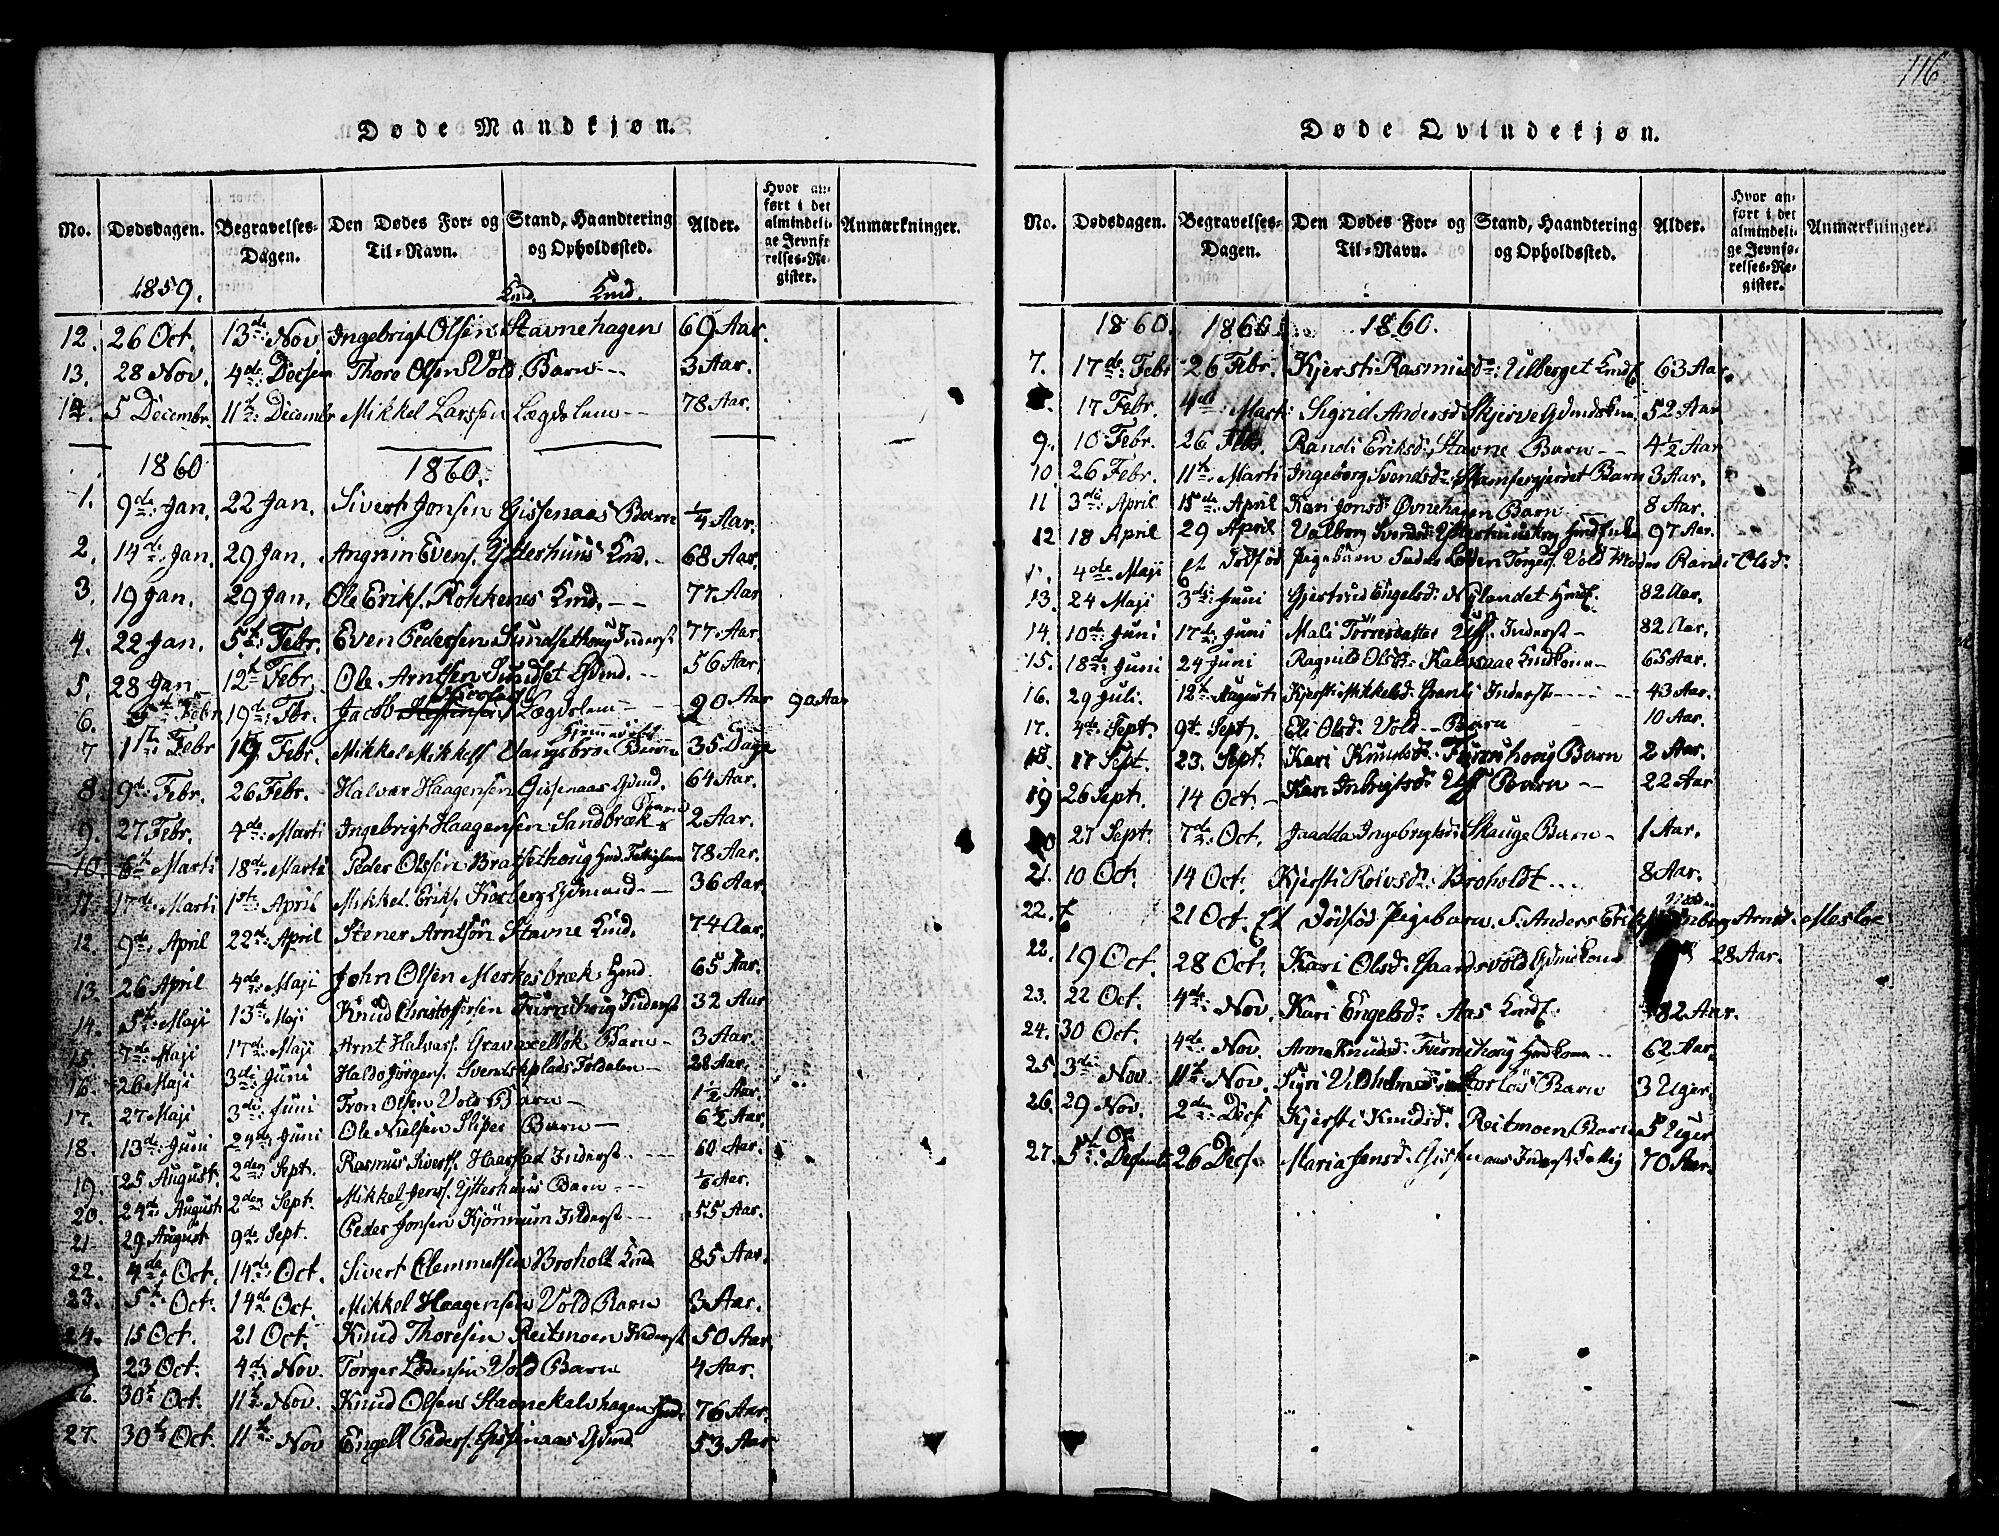 116
Døde Mandkjøn.
No. Dødsdagen. Begravelses-Dagen. Den Dødes For- og Til-Navn. Stand, Haandtering og Opholdssted. Alder. Hvor anført i det almindelige Jevnførelses-Register. Anmærkninger.
1859.
12. 26 Oct. 13de Nov Ingebrigt Olsen Stavnehagen 69 Aar.
13. 28 Nov. 4de Decsem Thore Olsen Vold Barn -- 3 Aar.
14. 5 Decembr 11te Decembr Mikkel Larssen Lægdslem -- 78 Aar.
1860 1860.
1. 9de Jan. 22 Jan. Sivert Jonsen Gissenaas Barn ¼ Aar.
2. 14de Jan. 29 Jan. Evens. Ytterhuus Kmd. - 68 Aar.
3. 19 Jan. 29 Jan. Ole Eriks. Rokkenes Kmd. -- 77 Aar
4. 22 Jan. 5te Febr. Even Pedersen Sundsethoug Inderst 77 Aar.
5. 28 Jan 12te Febr Ole Arntsen Sundset Gdmd. -- 56 Aar.
6. 19de Fbr. Jacob Lægdslem 90 Aar 90 Aar
7 1ste Febr 19 Febr. Mikkel Mikkels Vangsbroe Hjemmedøbt Barn 35 Dage
8. 9de Febr. 26 Febr. Halvar Haagensen Gissenaas Gdmd. 64 Aar.
9. 27 Febr. 4de Marti Ingebrigt Haagensen Sandbræk Barn 2 Aar.
10. 6te Marti 18de Marti Peder Olssen Bratsethoug Hmd. Fattiglem 78 Aar.
11. 17de Marti 1ste April Mikkel Eriks. Karberg Gdmand - 36 Aar.
12. 9de April 22de April Stener Arntsøn Stavne Kmd. 74 Aar.
13. 26 April 4de Maji John Olsen Merkesbræk Hmd. 65 Aar.
14. 5te Maji 13de Maji Knud Christoffersen Furruhoug Inderst 32 Aar
15. 7de Maji 17de Maji Arnt Halvars. Barn - 3 Aar.
16. 26 Maji 3die Juni Haldo Jørgens. Svenskplads Foldalen - 28 Aar.
17. 27 Maji 3die Juni Tron Olsen Vold Barn - 1½ Aar.
18. 13de Juni 24de Juni Ole Nielsen Sliper Barn - 6½ Aar.
19. 25 August. 2den Sept. Rasmus Siverts. Haarstad Inderst. 60 Aar.
20. 24de August 2den Sept. Mikkel Jens. Ytterhuus Barn -- Aar.
21. 29 August 9de Sept. Peder Jonsen Kjønnum Inderst -- 55 Aar.
22. 4de Oct. 14de Oct. Sivert Clemmetsen Broholt Kmd 85 Aar.
23. 5te Oct. 14de Oct. Mikkel Haagensen Vold Barn 3 Aar.
24. 15 Oct. 21 Oct. Knud Thoresen Reitmoen Inderst 50 Aar.
23 Oct. 4de Nov. Torger Lodensen Vold Barn 4 Aar.
26. 30te Oct. 11te Nov. Knud Olsens Stavnekalvhagen 76 Aar.
27. 30te Oct. 11te Nov Engelt Peders. Gissenaas Gdmd 53 Aar
Døde Qvindekjøn.
No. Dødsdagen. Begravelses-Dagen. Den Dødes For- og Til-Navn. Stand, Haandtering og Opholdssted. Alder. Hvor anført i det almindelige Jevnførelses-Register. Anmærkninger.
1860. 1860 1860.
7. 17de Febr 26 Febr. Kjersti Rasmusdr: Ulberget 63 Aar.
17 Febr. 4de Marti Sigrid Andersd: Skjerve Gdmdskone 52 Aar
9. 10 Febr. 26 Febr. Randi Eriksd: Stavne Barn -- 4½ Aar
10 26 Febr. 11te Marti Ingeborg Svendsd: Stamfergjerdet Barn 3 Aar.
11 3die April 15de April Kari Jonsd: Øvnehagen Barn -- 8 Aar.
12 18 April 29 April Valborg Svendsd: 97 Aar.
4de Maji et Dødfød Pigebarn Torgers. Vold Moder Randi Olsd:
13. 24 Maji 3die Juni Gjertrud Engelsd: Nylandet 82 Aar.
14. 10de Juni 17de Juni Mali Torresdatter Inderst - 82 Aar.
15. 18de Juni 24 Juni Ragnild Olsd: Kalvsaae 65 Aar.
16. 29 Juli. 12te Augusti Kjersti Mikkelsd: Granli Inderst -- 43 Aar.
17. 4de Sept. 9de Sept. Eli Olsd: Vold -- Barn 10 Aar.
18. 17 Sept. 23. Sept. Kari Knudsd: Furruhoug Barn 2 Aar.
19 26 Sept. 14 Oct. - Kari Inbrigtsd: Barn -- 22 Aar
20 27 Sept. 7de Oct. Jaadda Ingebrigtsd: Skauge Barn - 1 Aar.
21. 10 Oct. 14 Oct. Kjersti Rolvsd: Broholdt ... 8 Aar.
22. 21 Oct. Et Dødfød Pigebarn. F. Anders Moder Arntsd: Mesloe
22. 19 Oct. 28 Oct. Kari Olsd: Gaardsvold Gdmdkone 28 Aar.
23. 22 Oct. 4de Nov. Kari Engelsd: Aas 82 Aar.
24. 30 Oct. 4de Nov. Anne Knudsd: Furruhoug Hmdkone -- 62 Aar.
25. 3die Nov. 11te Nov. Sigri Barn 3 Uger.
26. 29 Nov. 2de Decs Kjersti Knudsd: Reitmoen Barn 5 Uger
27. 5te 26 Decs. Maria Jensd: Gissenaas Inderst Fattig 70 Aar.